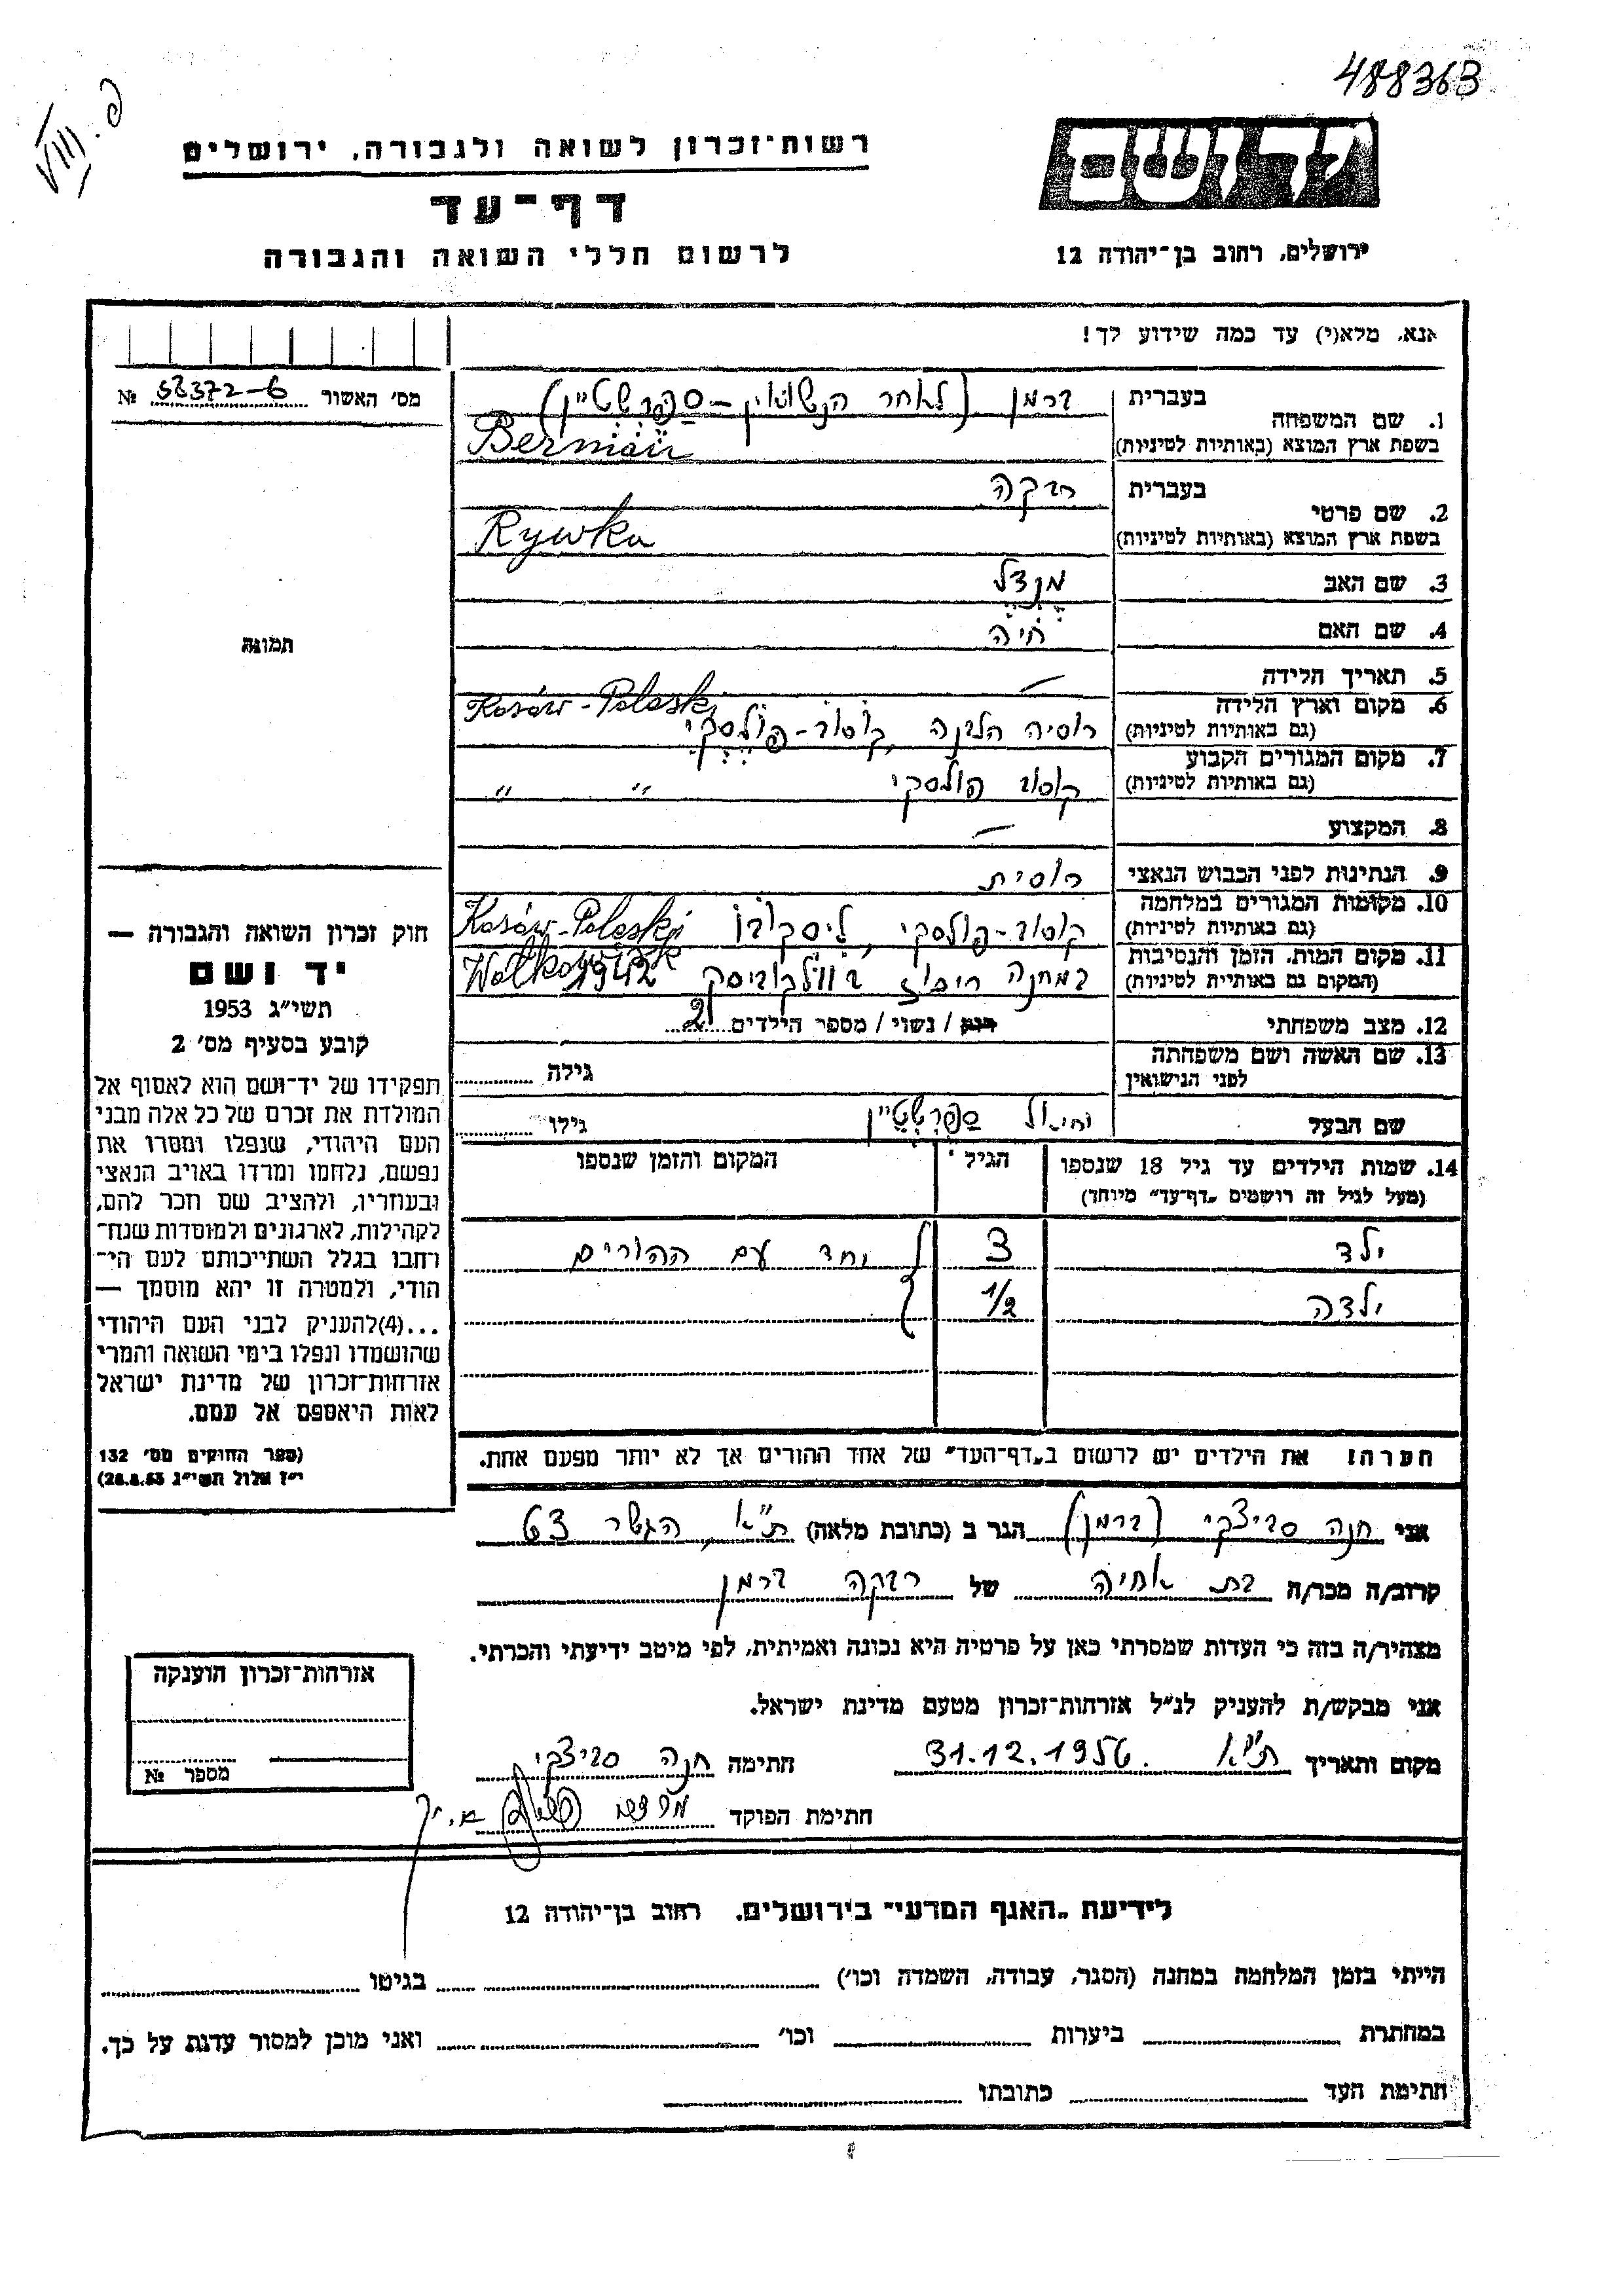 488363
VIII. פ
רשות־זכרון לשואה ולגבורה, ירושלים
דף־עד
לרשום חללי השואה והגבורה
יד ושם
ירושלים, רחוב בן־יהודה 12
אנא, מלא(י) עד כמה שידוע לך!
מס׳ האשור 58372-6 №
תמונה
1. שם המשפחה בעברית ברמן (לאחר הנשואין – ספרשטיין)
בשפת ארץ המוצא (באותיות לטיניות) Berman
2. שם פרטי בעברית רבקה
בשפת ארץ המוצא (באותיות לטיניות) Rywka
3. שם האב מנדל
4. שם האם חיה
5. תאריך הלידה —
6. מקום וארץ הלידה (גם באותיות לטיניות) רוסיה הלבנה, קוסוב-פולסקי Kosów-Poleski
7. מקום המגורים הקבוע (גם באותיות לטיניות) קוסוב פולסקי " "
8. המקצוע —
9. הנתינות לפני הכבוש הנאצי רוסית
10. מקומות המגורים במלחמה (גם באותיות לטיניות) קוסוב-פולסקי, ליסקובו Kosów-Poleski
11. מקום המות, הזמן והנסיבות (המקום גם באותיית לטיניות) במחנה ריכוז בוולקוביסק 1942 Wolkowisk
12. מצב משפחתי רוק / נשוי / מספר הילדים 2
13. שם האשה ושם משפחתה לפני הנישואין גילה
שם הבעל ספרשטיין גילו
14. שמות הילדים עד גיל 18 שנספו הגיל המקום והזמן שנספו
(מעל לגיל זה רושמים „דף־עד״ מיוחד)
ילד 3 יחד עם ההורים
ילדה 1/2
הערה! את הילדים יש לרשום ב„דף־העד״ של אחד ההורים אך לא יותר מפעם אחת.
חוק זכרון השואה והגבורה —
יד ושם
תשי״ג 1953
קובע בסעיף מס׳ 2
תפקידו של יד־ושם הוא לאסוף אל
המולדת את זכרם של כל אלה מבני
העם היהודי, שנפלו ומסרו את
נפשם, נלחמו ומרדו באויב הנאצי
ובעוזריו, ולהציב שם וזכר להם,
לקהילות, לארגונים ולמוסדות שנח־
רבו בגלל השתייכותם לעם הי־
הודי, ולמטרה זו יהא מוסמך —
...(4)להעניק לבני העם היהודי
שהושמדו ונפלו בימי השואה והמרי
אזרחות־זכרון של מדינת ישראל
לאות היאספם אל עמם.
(ספר החוקים מס׳ 132
י״ז אלול תשי״ג 28.8.53)
אני חנה סביצקי (ברמן) הגר ב (כתובת מלאה) ת"א, הגשר 63
קרוב/ה מכר/ה בת אחיה של רבקה ברמן
מצהיר/ה בזה כי העדות שמסרתי כאן על פרטיה היא נכונה ואמיתית, לפי מיטב ידיעתי והכרתי.
אני מבקש/ת להעניק לנ״ל אזרחות־זכרון מטעם מדינת ישראל.
מקום ותאריך ת"א 31.12.1956 חתימה חנה סביצקי
חתימת הפוקד
אזרחות־זכרון הוענקה
מספר №
לידיעת „האגף המדעי״ בירושלים, רחוב בן־יהודה 12
הייתי בזמן המלחמה במחנה (הסגר, עבודה, השמדה וכו׳) בגיטו
במחתרת ביערות וכו׳ ואני מוכן למסור עדות על כך.
חתימת העד כתובתו